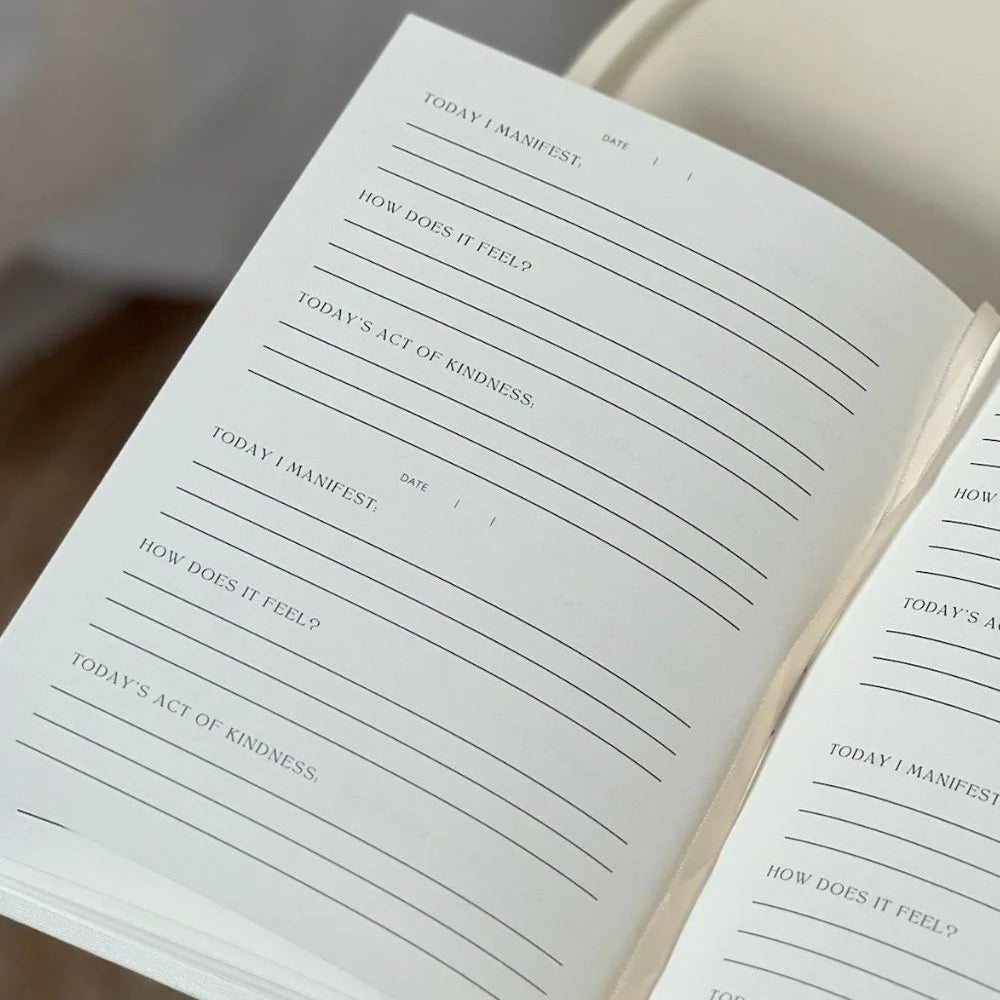 TODAY I MANIFEST:
DATE / /
HOW DOES IT FEEL?
TODAY'S ACT OF KINDNESS:
TODAY I MANIFEST:
DATE / /
HOW DOES IT FEEL?
TODAY'S ACT OF KINDNESS:
HOW
TODAY'S
TODAY I MANIFEST
HOW DOES IT FEEL?